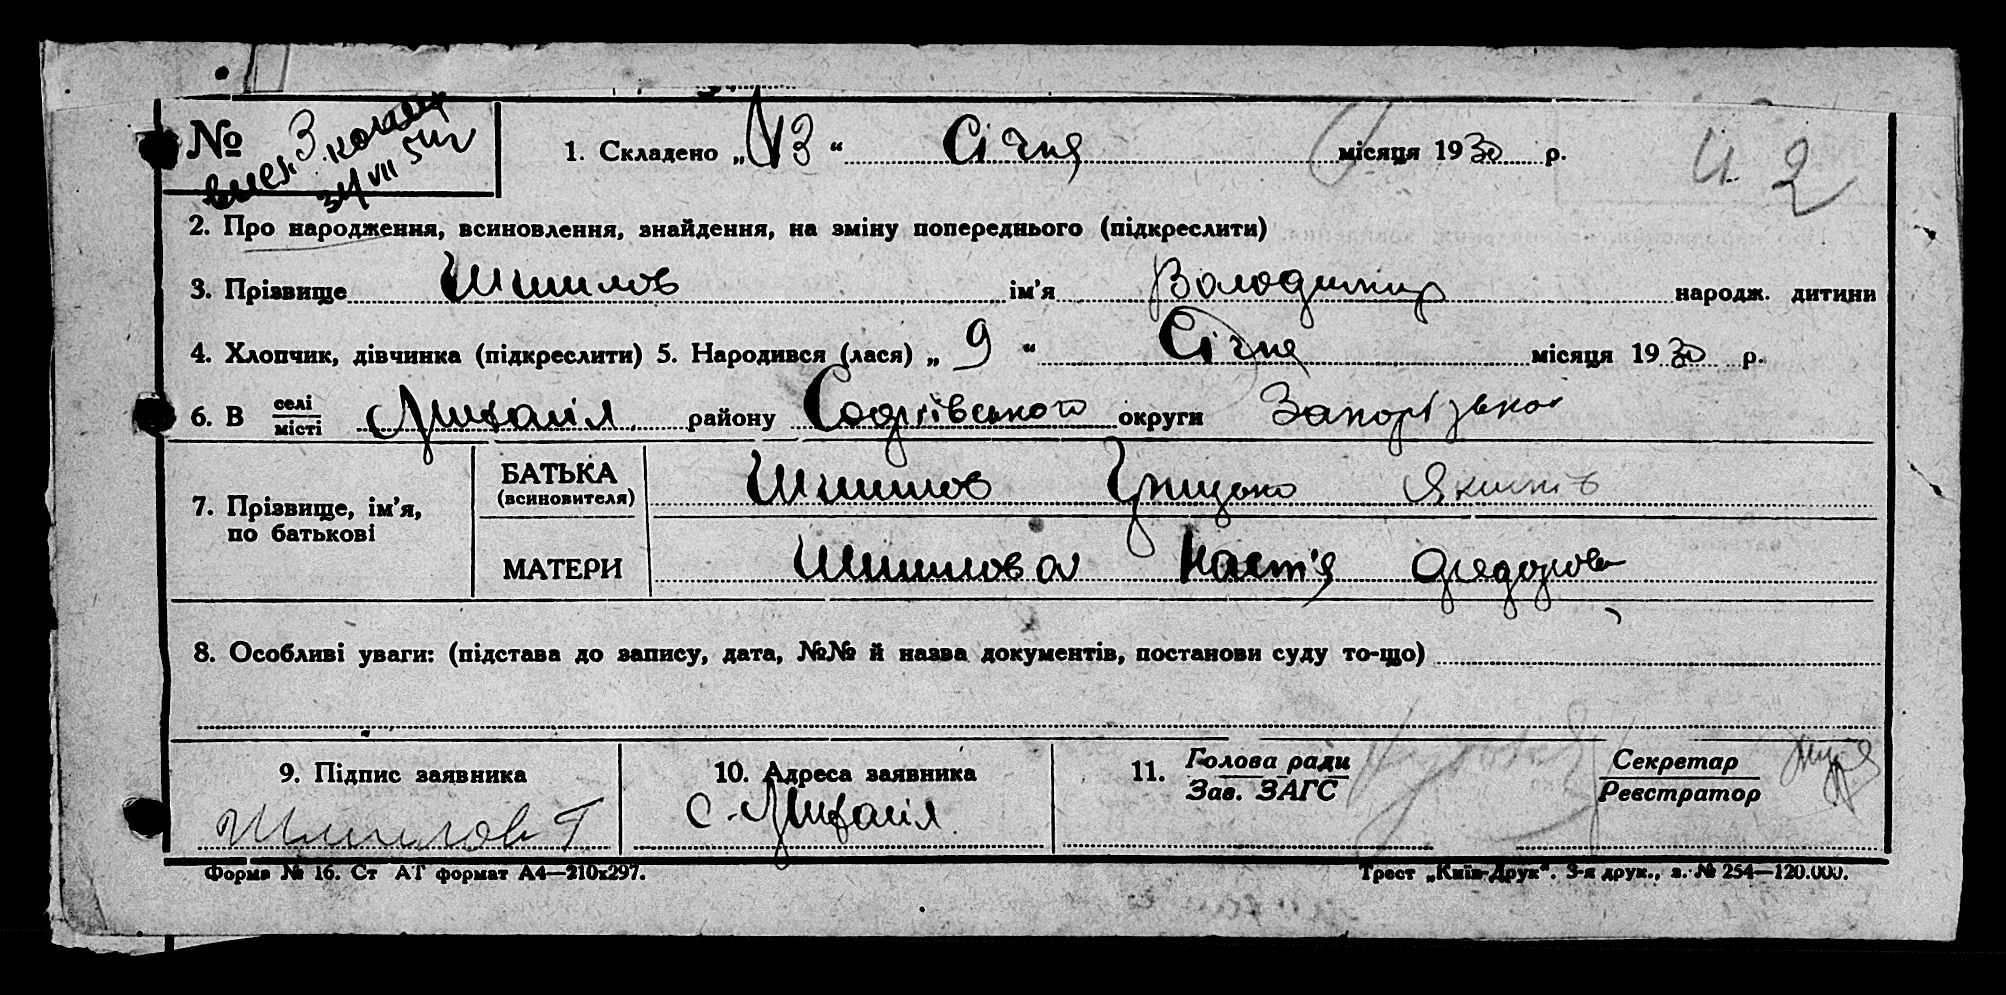 № 3
1. Складено „ 13 “ Січня місяця 1930 р.
2. Про народження, всиновлення, знайдення, на зміну попереднього (підкреслити)
3. Прізвище Шишлов ім'я Володимир народж. дитини
4. Хлопчик, дівчинка (підкреслити) 5. Народився (лася) „ 9 “ Січня місяця 1930 р.
6. В селі місті району Софіївського округи Запорізької
7. Прізвище, ім'я, по батькові
БАТЬКА (всиновителя) Шишлов Грицько
МАТЕРИ Шишлова Настя Федорова
8. Особливі уваги: (підстава до запису, дата, №№ й назва документів, постанови суду то-що)
9. Підпис заявника
Шишлов Г
10. Адреса заявника
с.
11. Голова ради
Зав. ЗАГС
Секретар
Реєстратор
Форма № 16. Ст АТ формат А4—210х297.
Трест „Київ-Друк“. 3-я друк., з. № 254—120.000.